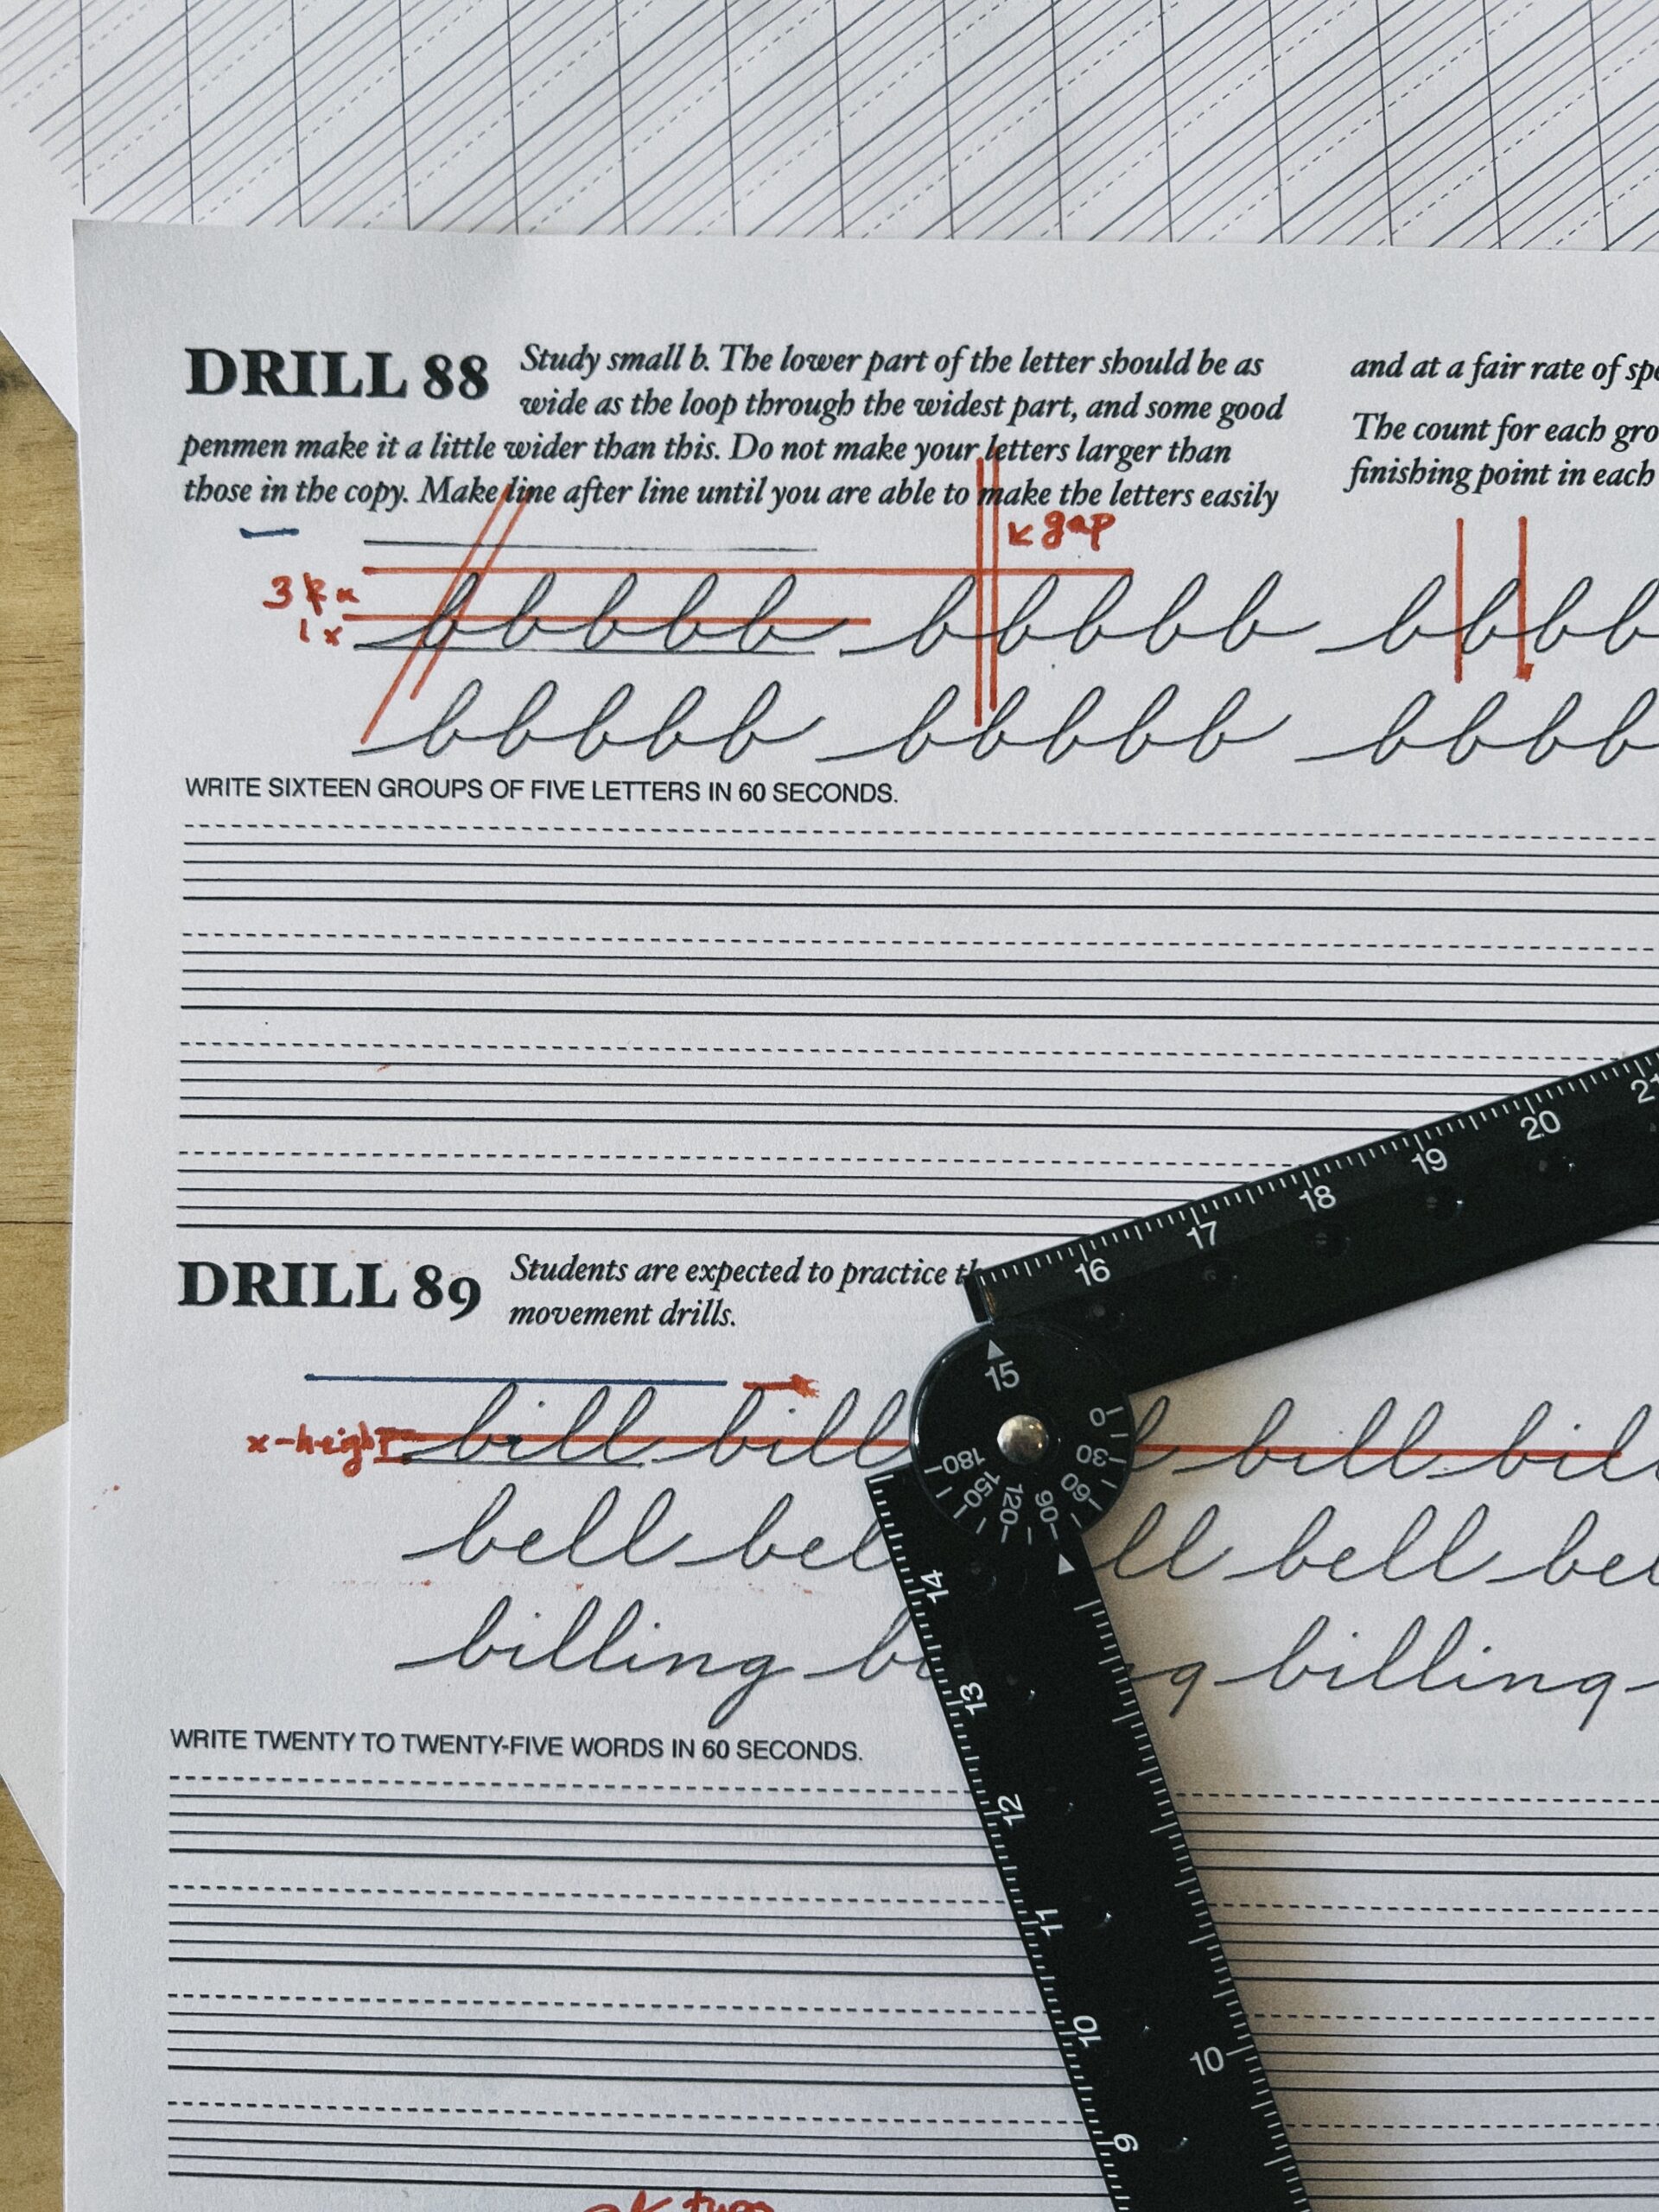 DRILL 88 Study small b. The lower part of the letter should be as
wide as the loop through the widest part, and some good
penmen make it a little wider than this. Do not make your letters larger than
those in the copy. Make line after line until you are able to make the letters easily
and at a fair rate of
The count for each
finishing point in each
gap
3
1 x
bbbbb bbbbb bbbb
bbbbb bbbbb bbbb
WRITE SIXTEEN GROUPS OF FIVE LETTERS IN 60 SECONDS.
DRILL 89 Students are expected to practice
movement drills.
x-height
bill bill bill
bell bell
billing billing
WRITE TWENTY TO TWENTY-FIVE WORDS IN 60 SECONDS.
21
20
19
18
17
16
15
0
30
60
90
120
150
180
14
13
12
11
10
10
9